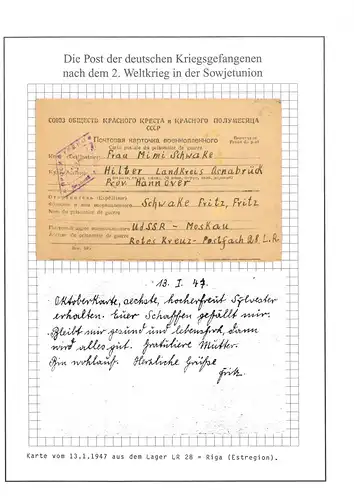 Die Post der deutschen Kriegsgefangenen
nach dem 2. Weltkrieg in der Sowjetunion
СОЮЗ ОБЩЕСТВ КРАСНОГО КРЕСТА и КРАСНОГО ПОЛУМЕСЯЦА
СССР
Почтовая карточка военнопленного
Carte postale du prisonnier de guerre
Frau Mimi Schwake
Hilter Landkreis Osnabrück
Prov. Hannover
Schwake Fritz, Fritz
UdSSR - Moskau
Rotes Kreuz - Postfach 28, L.R.
13. I. 47.
Oktoberkarte, sechste, hocherfreut Sylvester
erhalten. Euer Schaffen gefällt mir.
Bleibt mir gesund und lebensfroh, dann
wird alles gut. Gratuliere Mutter.
Bin wohlauf. Herzliche Grüße
Fritz.
Karte vom 13.1.1947 aus dem Lager LR 28 = Riga (Estregion).